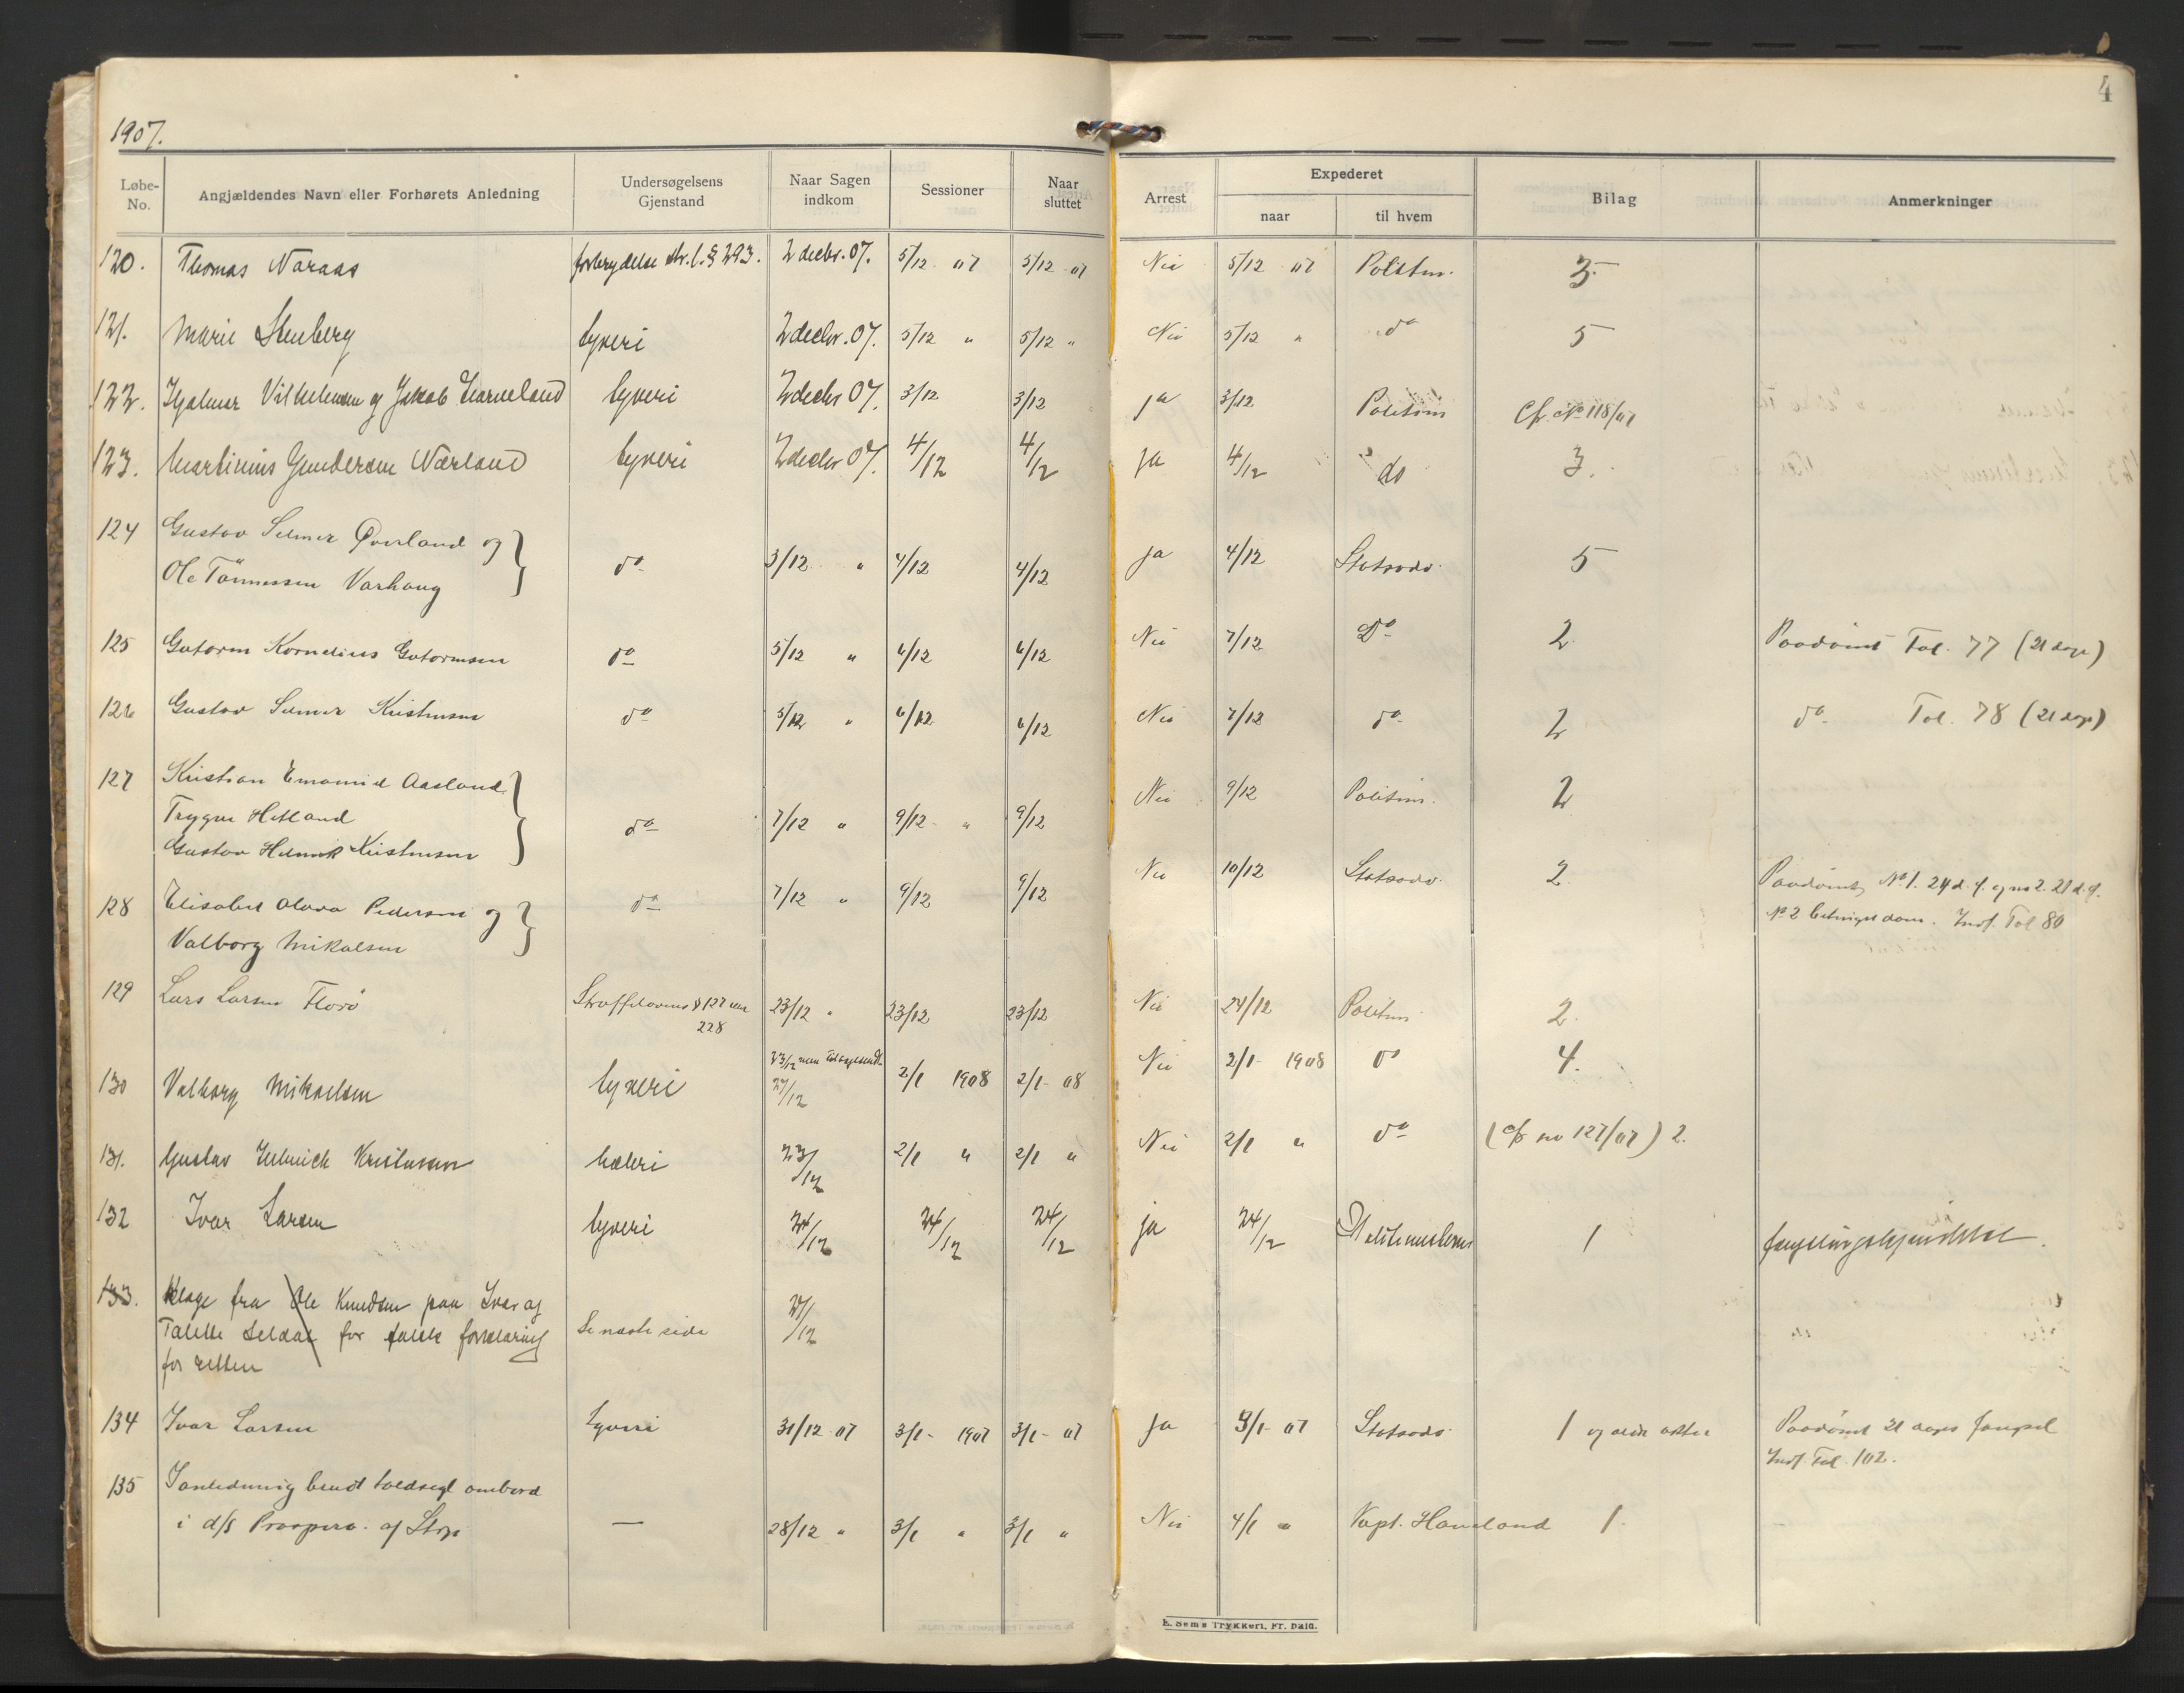 1907.
4
Løbe-No. Angjældendes Navn eller Forhørets Anledning Undersøgelsens Gjenstand Naar Sagen indkom Sessioner Naar sluttet Arrest Expederet naar til hvem Bilag Anmerkninger
120. Thomas Naraas forbrydelse str.l. § 293. 2 decbr. 07. 5/12 07 5/12 07 Nei 5/12 07 Politim. 3
121. Marie Stenberg tyveri 2 decbr. 07. 5/12 " 5/12 " Nei 5/12 " do 5
122. Hjalmar Vilhelmsen og Jakob tyveri 2 decbr 07. 3/12 3/12 ja 3/12 Politim Cfr. No 118/07
123. Martinius Gundersen Nærland tyveri 2 decbr 07. 4/12 4/12 ja 4/12 do 3.
124 Gustav Selmer Øverland og
Ole Tönnessen Varhaug do 3/12 " 4/12 4/12 ja 4/12 Statsadv. 5
125 Gutorm Kornelius Gutormsen do 5/12 " 6/12 6/12 Nei 7/12 Do 2 Paadömt Fol. 77 (21 dage)
126 Gustav Selmer Kristensen do 5/12 " 6/12 6/12 Nei 7/12 do 2 do Fol. 78 (21 dage)
127 Kristian Emanuel Aasland
Trygve Hetland
Gustav Helmik Kristensen do 7/12 " 9/12 " 9/12 Nei 9/12 Politim. 2
128 Elisabet Olava Pedersen og
Valborg Mikalsen do 7/12 " 9/12 9/12 Nei 10/12 Statsadv. 2 Paadömt, No 1. 24 d. f. og no 2. 21 d. f.
No 2 betinget dom. Indf. Fol 80
129 Lars Larsen Florö Straffelovens § 127 228 23/12 " 23/12 23/12 Nei 24/12 Politim 2.
130 Valborg Mikaelsen tyveri 23/12 men 27/12 2/1 1908 2/1- 08 Nei 2/1- 1908 do 4.
131. Gustav Helmich Kristensen hæleri 23/12 2/1 " 2/1 " Nei 2/1 " do (cfr no 127/07) 2.
132 Ivar Larsen tyveri 24/12 24/12 24/12 ja 24/12 Politimesteren 1 fængslingskjendelse.
133. Klage fra Ole Knudsen paa Ivar og
Talette Seldal for falsk forklaring
for retten Se neste side 27/12
134 Ivar Larsen tyveri 31/12 07 3/1- 1907 3/1- 07 ja 3/1- 07 Statsadv. 1 og akter Paadömt 21 dages fængsel
Indf. Fol. 102.
135 I anledning brudt toldsegl ombord
i d/s Prospero. af Stvgr — 28/12 " 3/1 " 3/1 " Nei 4/1 " Kapt. Haneland 1.
E. Sem's Trykkeri, Fr.hald.